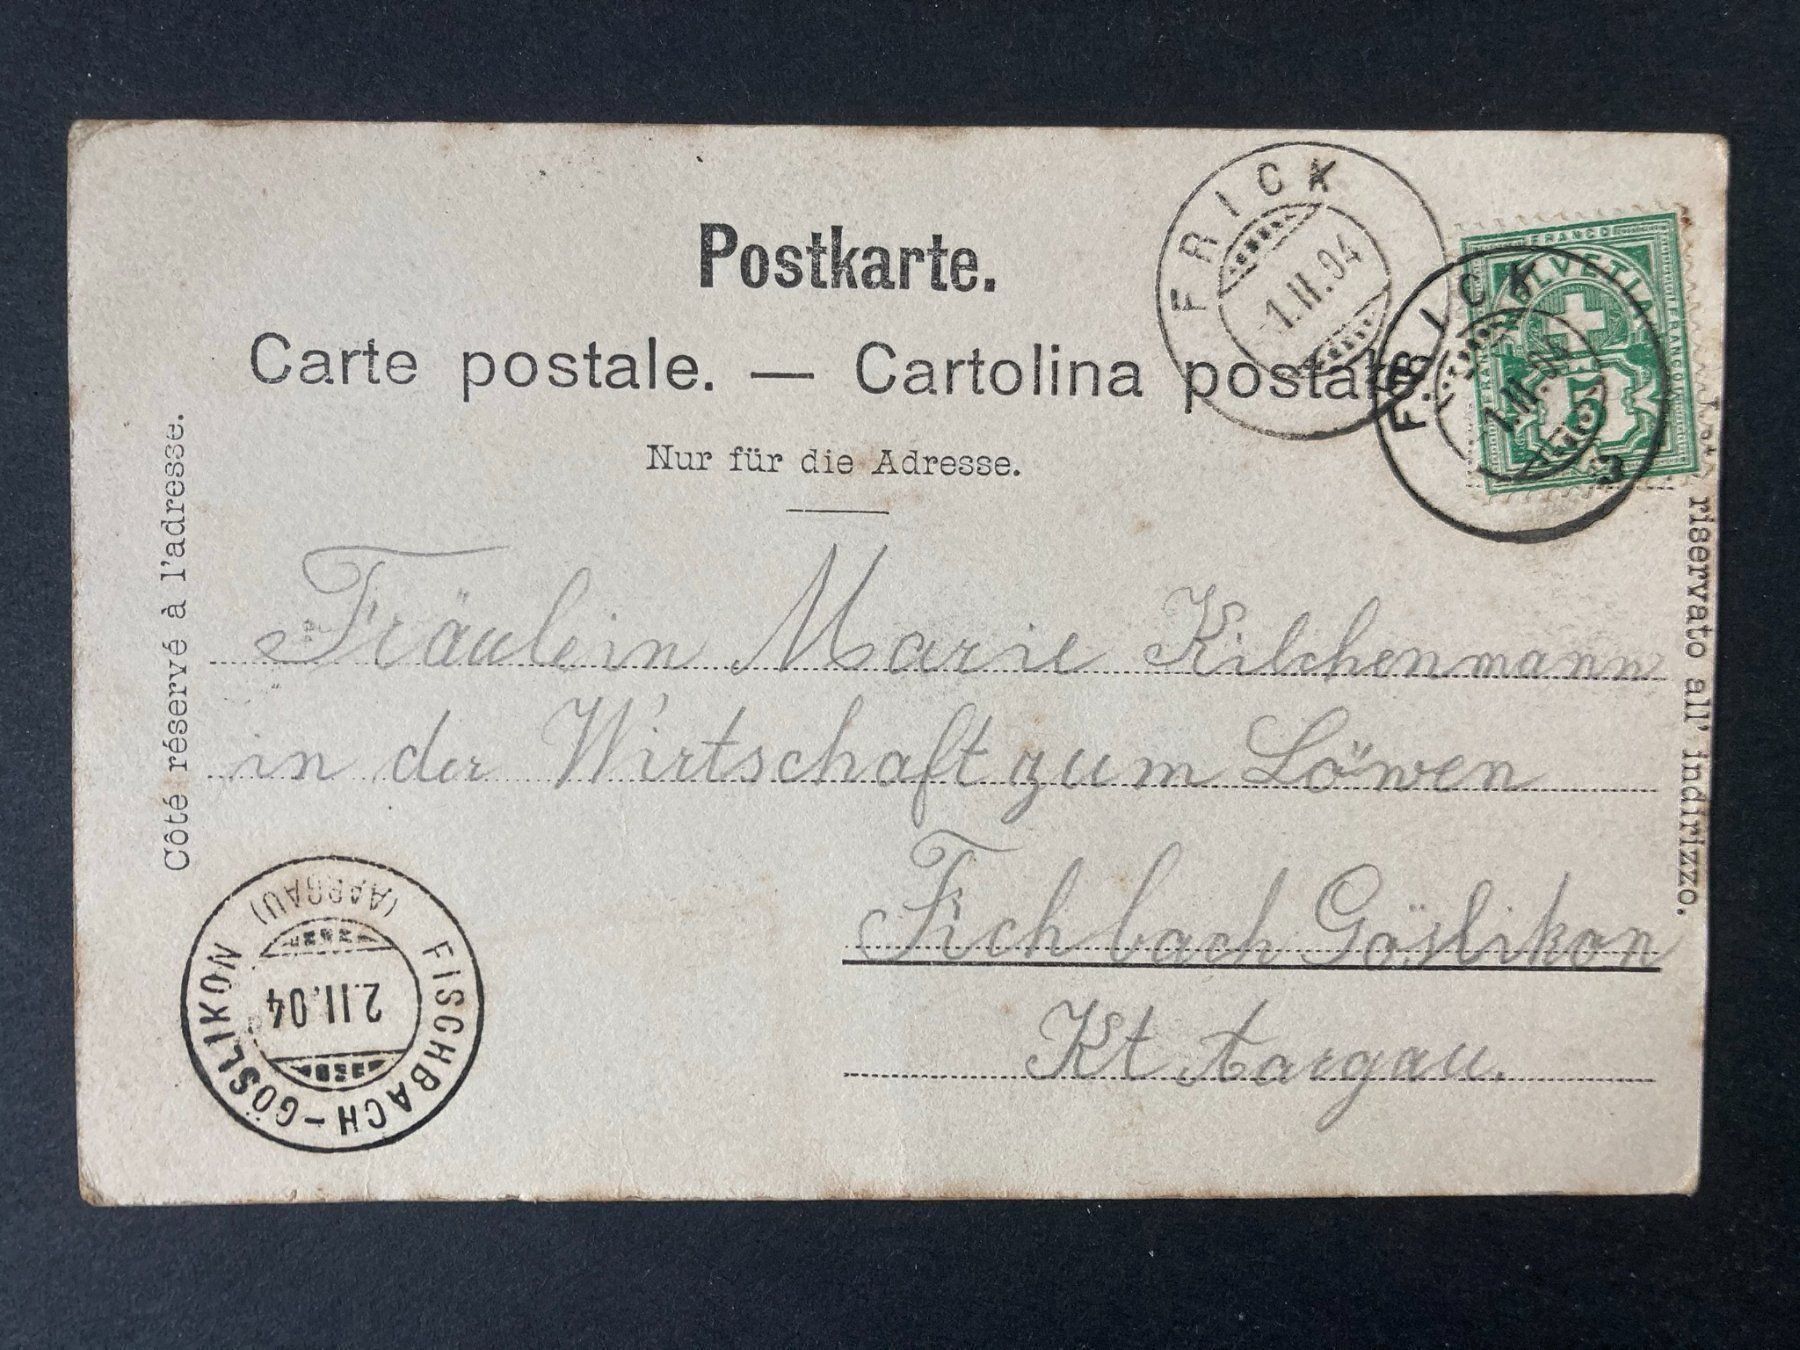 Postkarte.
Carte postale. — Cartolina postale.
Nur für die Adresse.
Côté réservé à l'adresse.
riservato all' indirizzo.
FRICK
1.II.04
FRANCO
HELVETIA
FRANCO
5
FRICK
1.II.04
Fräulein Marie Kilchenmann
in der Wirtschaft zum Löwen
Fichbach Göslikon
Kt Aargau.
FISCHBACH-GÖSLIKON
(AARGAU)
2.II.04